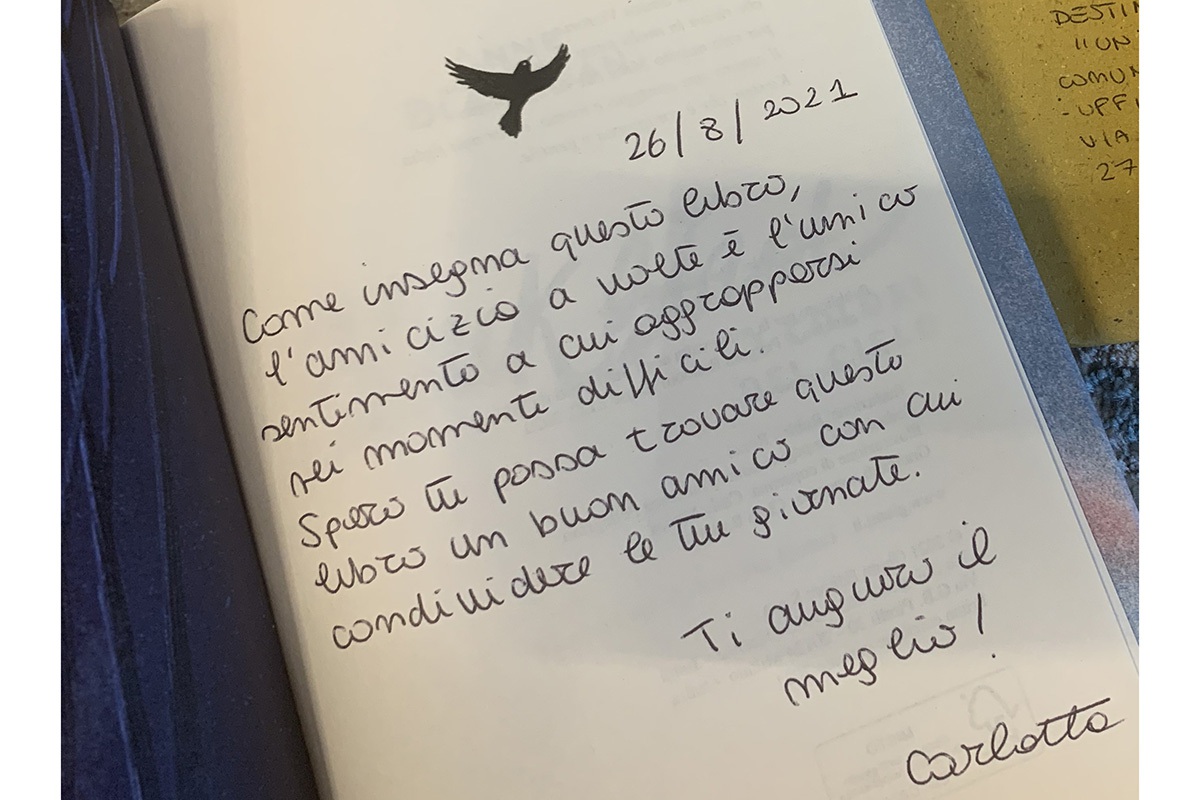 26/8/2021
Come insegna questo libro,
l'amicizia a volte è l'unico
sentimento a cui aggrapparsi
nei momenti difficili.
Spero tu possa trovare questo
libro un buon amico con cui
condividere le tue giornate.
Ti auguro il
meglio!
Carlotta
DESTIN
"UN
COMUN
- UFFI
VIA
27